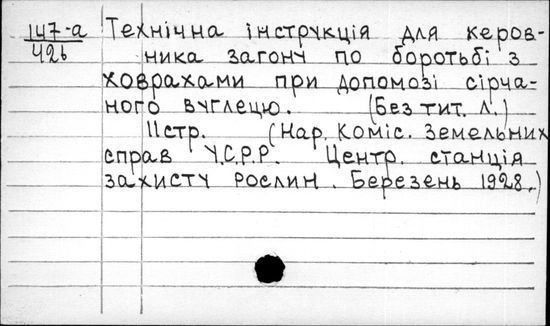 147-а Технічна інструкція для керов-
42б ника загону по боротьбі з
ховрахами при допомозі сірча-
ного вуглецю. (Без тит. л.)
11стр. (Нар. Коміс. Земельних
справ У.С.Р.Р. Центр. станція
захисту рослин. Березень 1928.)